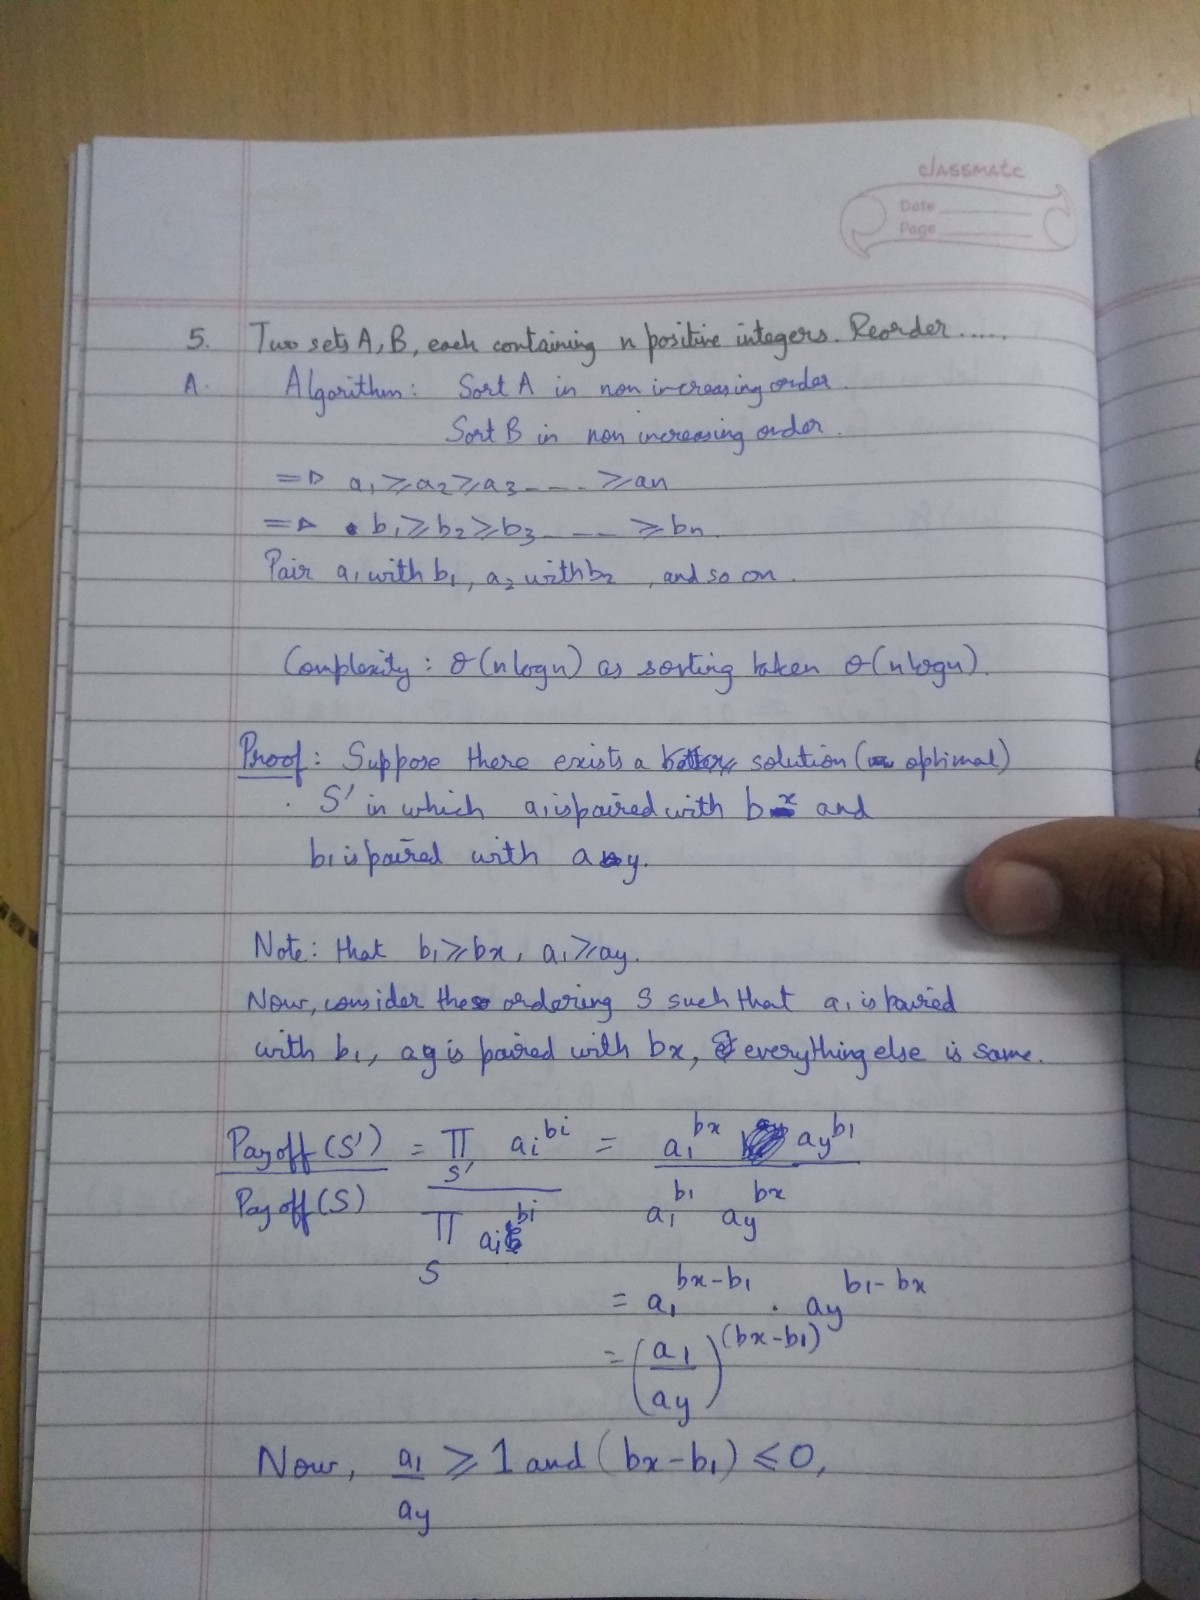 classmate
Date
Page
5. Two sets A, B, each containing n positive integers. Reorder .....
A. Algorithm: Sort A in non increasing order.
Sort B in non increasing order.
=> a1 ≥ a2 ≥ a3 ---- ≥ an
=> b1 ≥ b2 ≥ b3 ---- ≥ bn.
Pair a1 with b1, a2 with b2, and so on.
Complexity: θ(n log n) as sorting taken θ(n log n).
Proof: Suppose there exists a solution (optimal)
S' in which a1 is paired with bx and
b1 is paired with ay.
Note: that b1 ≥ bx, a1 ≥ ay.
Now, consider the ordering S such that a1 is paired
with b1, ay is paired with bx, & everything else is same.
Payoff(S') / Payoff(S) = ∏_{S'} ai^{bi} / ∏_{S} ai^{bi} = a1^{bx} ay^{b1} / a1^{b1} ay^{bx}
= a1^{bx-b1} . ay^{b1-bx}
= (a1/ay)^{(bx-b1)}
Now, a1/ay ≥ 1 and (bx-b1) ≤ 0,